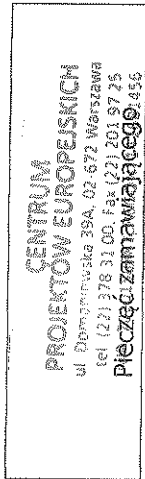 CENTRUM
PROJEKTÓW EUROPEJSKICH
ul. Domaniewska 39A, 02-672 Warszawa
tel. (22) 378 31 00, Fax (22) 201 97 25
Pieczęć zamawiającego